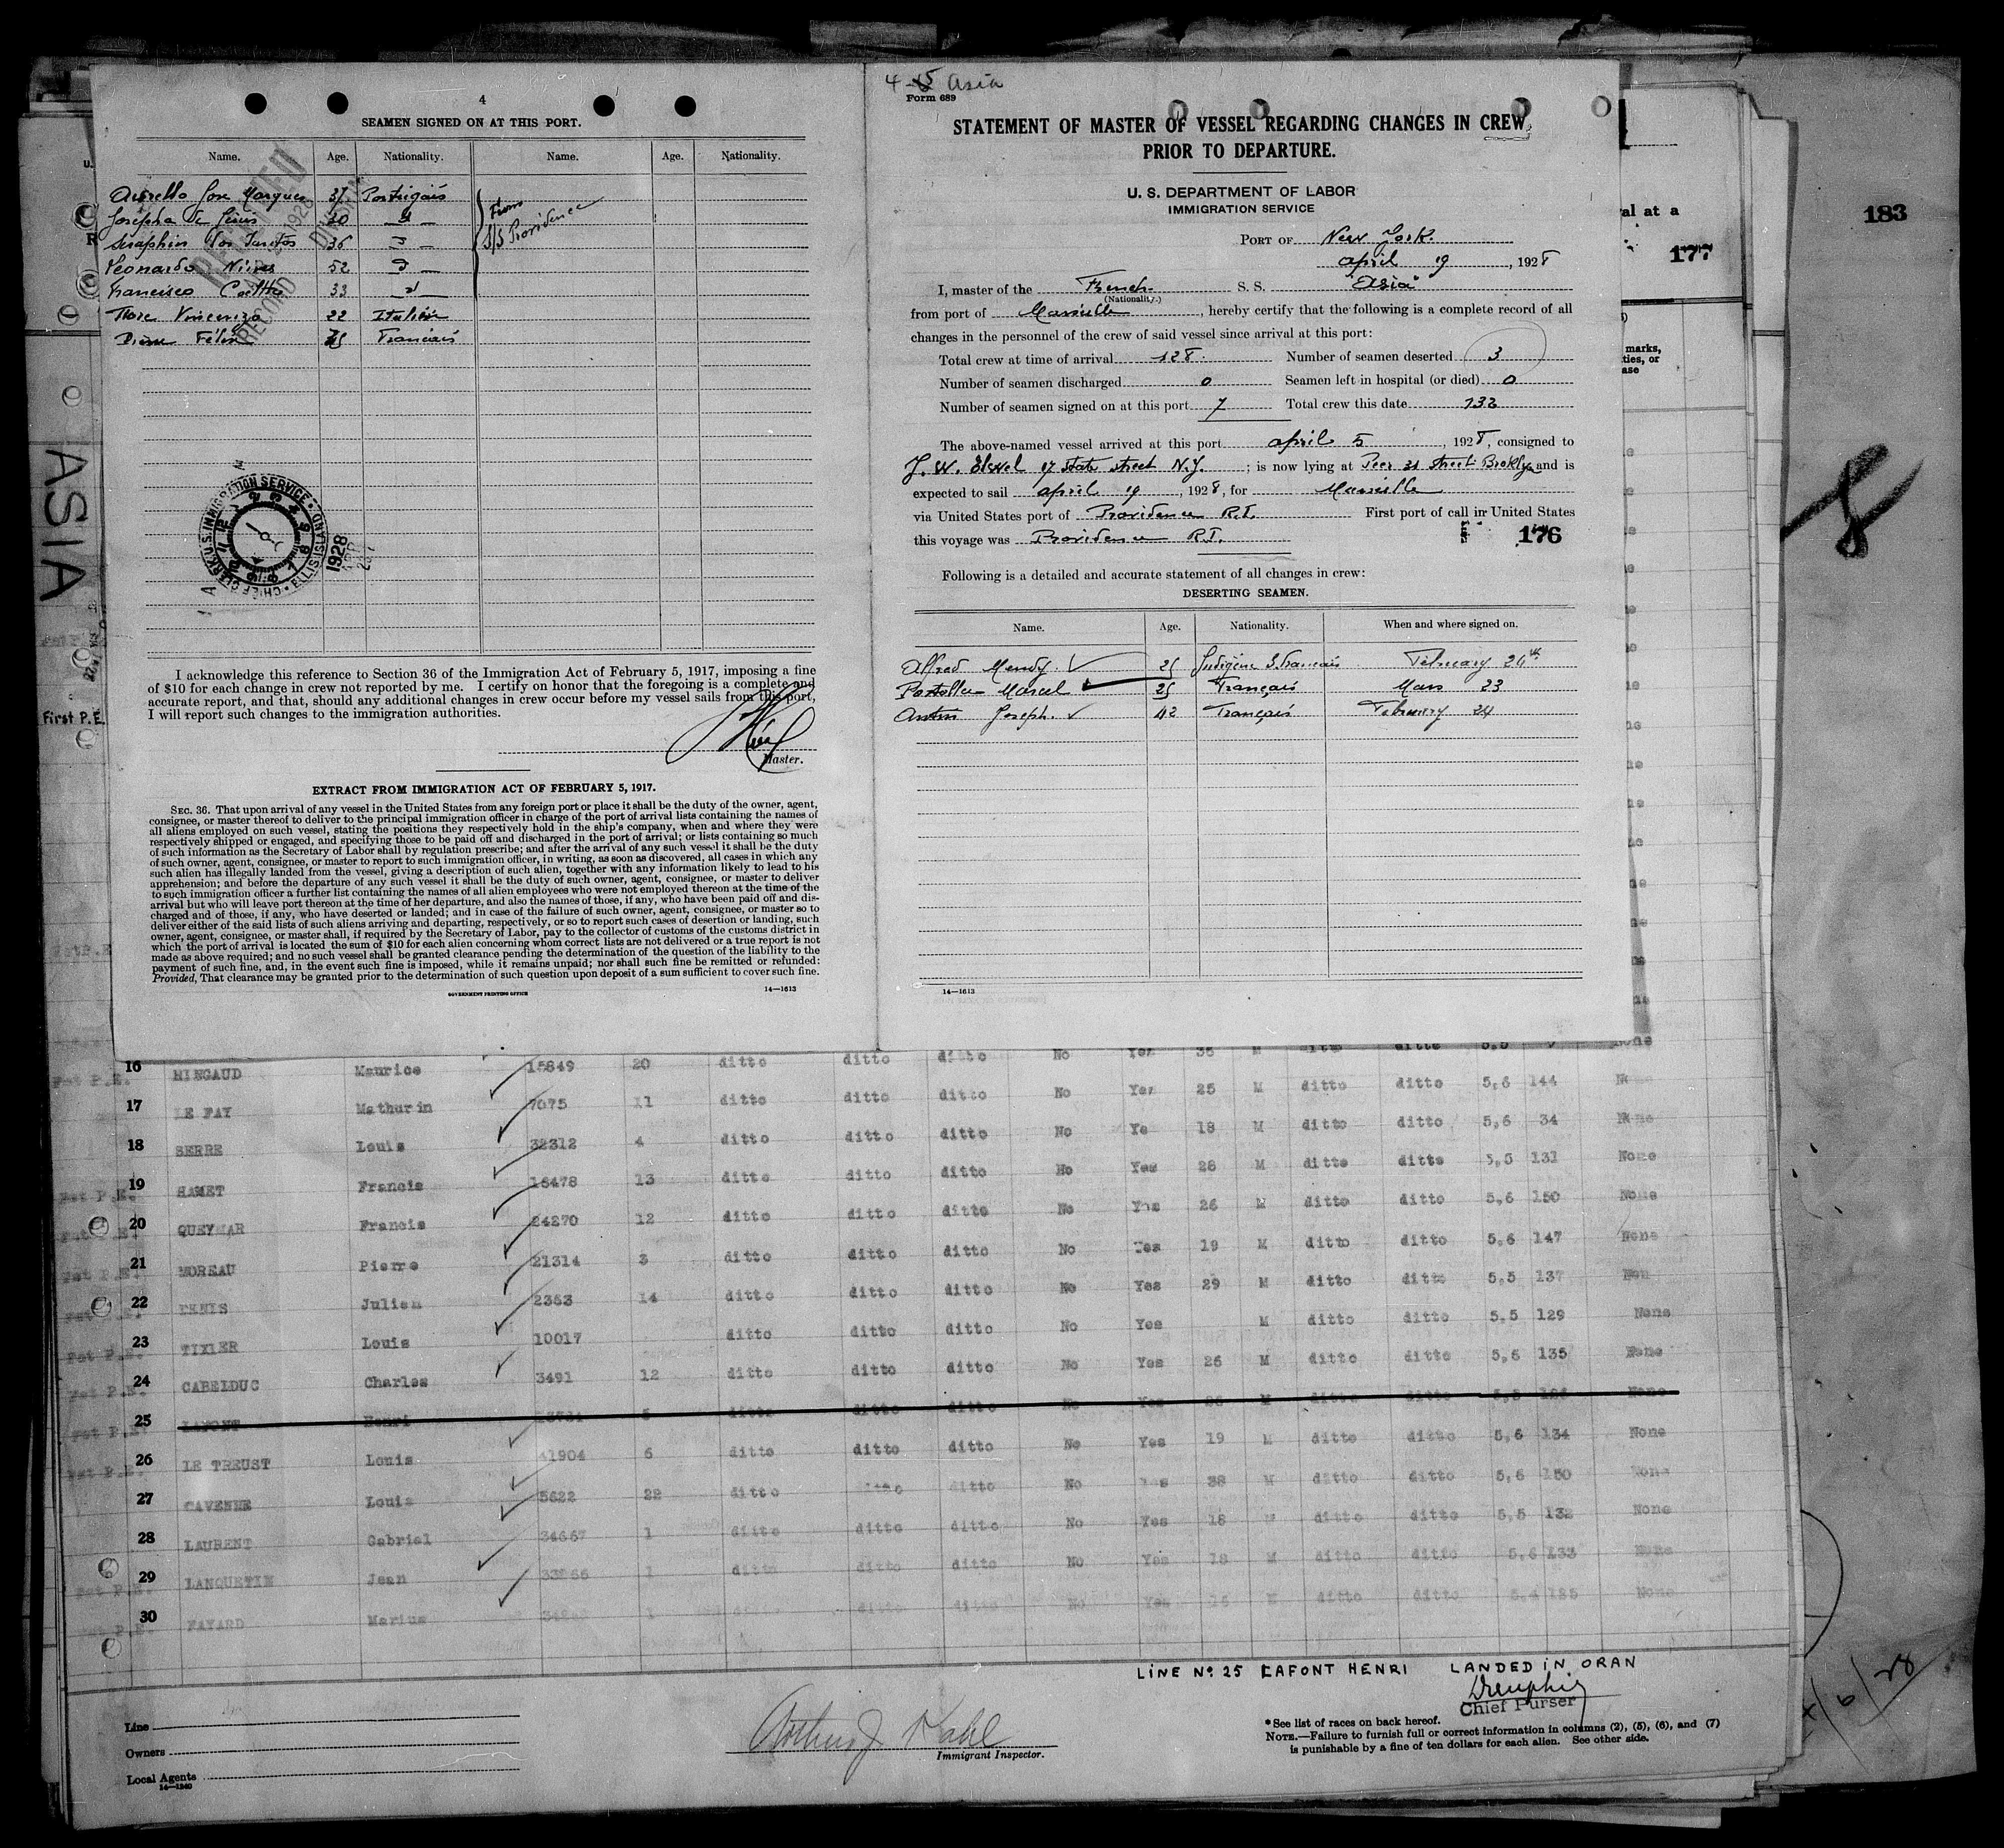 4
SEAMEN SIGNED ON AT THIS PORT.
Name. Age. Nationality. Name. Age. Nationality.
Aurello Jose Marques 37 Portugais
Josepha de Jesus 30 d
Seraphin dos Santos 36 d
Leonardo Nunes 52 d
Francisco Coelho 33 d
Vincenzo 22 Italien
Pierre Félix Francais
From
S/S Providence
RECEIVED
1928
RECORD DIVISION
CHIEF CLERK U.S. IMMIGRATION SERVICE ELLIS ISLAND
1928
I acknowledge this reference to Section 36 of the Immigration Act of February 5, 1917, imposing a fine
of $10 for each change in crew not reported by me. I certify on honor that the foregoing is a complete and
accurate report, and that, should any additional changes in crew occur before my vessel sails from this port,
I will report such changes to the immigration authorities.
Master.
EXTRACT FROM IMMIGRATION ACT OF FEBRUARY 5, 1917.
SEC. 36. That upon arrival of any vessel in the United States from any foreign port or place it shall be the duty of the owner, agent,
consignee, or master thereof to deliver to the principal immigration officer in charge of the port of arrival lists containing the names of
all aliens employed on such vessel, stating the positions they respectively hold in the ship's company, when and where they were
respectively shipped or engaged, and specifying those to be paid off and discharged in the port of arrival; or lists containing so much
of such information as the Secretary of Labor shall by regulation prescribe; and after the arrival of any such vessel it shall be the duty
of such owner, agent, consignee, or master to report to such immigration officer, in writing, as soon as discovered, all cases in which any
such alien has illegally landed from the vessel, giving a description of such alien, together with any information likely to lead to his
apprehension; and before the departure of any such vessel it shall be the duty of such owner, agent, consignee, or master to deliver
to such immigration officer a further list containing the names of all alien employees who were not employed thereon at the time of the
arrival but who will leave port thereon at the time of her departure, and also the names of those, if any, who have been paid off and dis-
charged and of those, if any, who have deserted or landed; and in case of the failure of such owner, agent, consignee, or master so to
deliver either of the said lists of such aliens arriving and departing, respectively, or so to report such cases of desertion or landing, such
owner, agent, consignee, or master shall, if required by the Secretary of Labor, pay to the collector of customs of the customs district in
which the port of arrival is located the sum of $10 for each alien concerning whom correct lists are not delivered or a true report is not
made as above required; and no such vessel shall be granted clearance pending the determination of the question of the liability to the
payment of such fine, and, in the event such fine is imposed, while it remains unpaid; nor shall such fine be remitted or refunded:
Provided, That clearance may be granted prior to the determination of such question upon deposit of a sum sufficient to cover such fine.
GOVERNMENT PRINTING OFFICE
14—1613
4-5 Asia
Form 689
STATEMENT OF MASTER OF VESSEL REGARDING CHANGES IN CREW
PRIOR TO DEPARTURE.
U. S. DEPARTMENT OF LABOR
IMMIGRATION SERVICE
PORT OF New York.
April 19, 1928
I, master of the French S. S. "Asia"
(Nationality.)
from port of Marseille, hereby certify that the following is a complete record of all
changes in the personnel of the crew of said vessel since arrival at this port:
Total crew at time of arrival 128. Number of seamen deserted 3
Number of seamen discharged 0 Seamen left in hospital (or died) 0
Number of seamen signed on at this port 7 Total crew this date 132
The above-named vessel arrived at this port April 5, 1928, consigned to
J. W. Elwel 17 State street N.Y.; is now lying at Peer 31 street Broklyn and is
expected to sail April 19, 1928, for Marseille
via United States port of Providence R.I. First port of call in United States
this voyage was Providence R.I.
176
Following is a detailed and accurate statement of all changes in crew:
DESERTING SEAMEN.
Name. Age. Nationality. When and where signed on.
Alfred Mendy 25 Indigène S. Francais February 24th
Marcel 25 Français Mars 23
Joseph. 42 Français February 24
14—1613
ASIA
First P.E.
val at a
177
marks,
ties, or
ase
183
8
16 HINGAUD Maurice 15849 20 ditto ditto ditto No Yes 35 M ditto ditto 5,5 None
17 LE FAY Mathurin 7075 11 ditto ditto ditto No Yes 25 M ditto ditto 5,6 144
18 SERRE Louis 32312 4 ditto ditto ditto No Ye 18 M ditto ditto 5,6 34 None
19 HAMET Francis 16478 13 ditto ditto ditto No Yes 28 M ditto ditto 5,5 131 None
20 QUEYMAR Francis 24270 12 ditto ditto ditto No Yes 26 M ditto ditto 5,6 150 None
21 MOREAU Pierre 21314 3 ditto ditto ditto No Yes 19 M ditto ditto 5,6 147 None
22 DENIS Julien 2353 14 ditto ditto ditto No Yes 29 M ditto ditto 5,5 137 Non
23 TIXIER Louis 10017 ditto ditto ditto No Yes M ditto ditto 5,5 129 None
24 CABELDUC Charles 3491 12 ditto ditto ditto No Yes 26 M ditto ditto 5,6 135 None
25 LAFONT Henri 5 ditto ditto ditto No Yes M ditto ditto 5,5 None
26 LE TREUST Louis 41904 6 ditto ditto ditto No Yes 19 M ditto ditto 5,6 134 None
27 CAVENNE Louis 5622 22 ditto ditto ditto No Yes 38 M ditto ditto 5,6 150 None
28 LAURENT Gabriel 34667 1 ditto ditto ditto No Yes 18 M ditto ditto 5,5 132 None
29 LANQUETIN Jean 1 ditto ditto ditto No Yes 18 M ditto ditto 5,6 133 None
30 FAYARD Marius 1 ditto ditto ditto No Yes M ditto ditto 5,4 None
LINE No. 25 LAFONT HENRI LANDED IN ORAN
Chief Purser
Line
Owners
Local Agents
14—1240
Arthur J Kahl
Immigrant Inspector.
*See list of races on back hereof.
NOTE.—Failure to furnish full or correct information in columns (2), (5), (6), and (7)
is punishable by a fine of ten dollars for each alien. See other side.